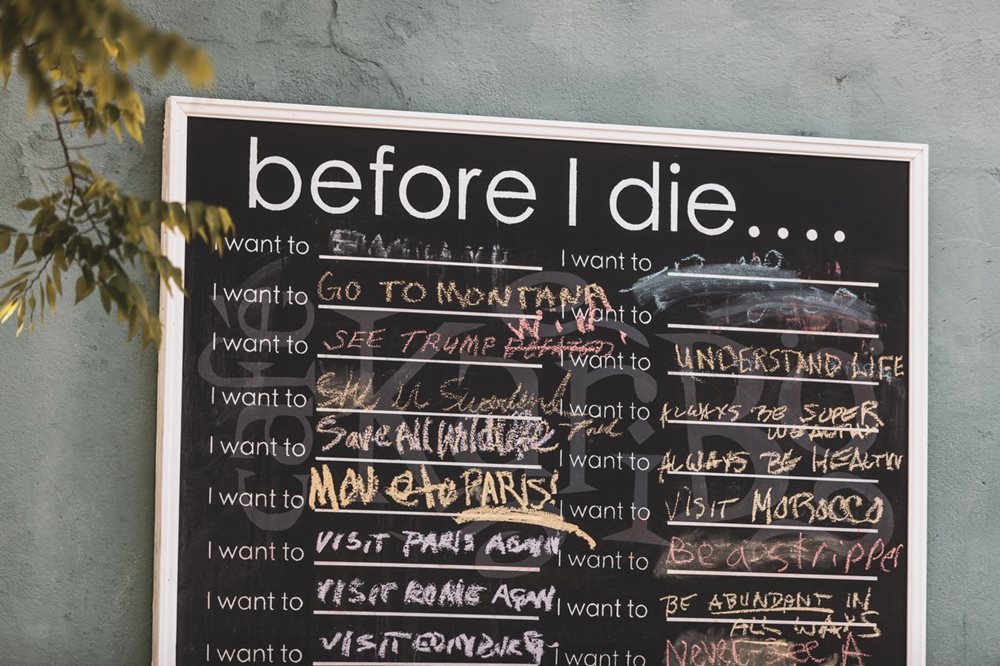 before I die.....
I want to
I want to GO TO MONTANA
I want to SEE TRUMP WIN
I want to
I want to Save All Wildlife
I want to Move to PARIS!
I want to VISIT PARIS AGAIN
I want to VISIT ROME AGAIN
I want to VISIT EDINBURG
I want to
I want to
I want to UNDERSTAND LIFE
I want to ALWAYS BE SUPER
I want to ALWAYS BE HEALTHY
I want to VISIT MOROCCO
I want to Be a stripper
I want to BE ABUNDANT IN
ALL WAYS
I want to NEVER SEE A
café